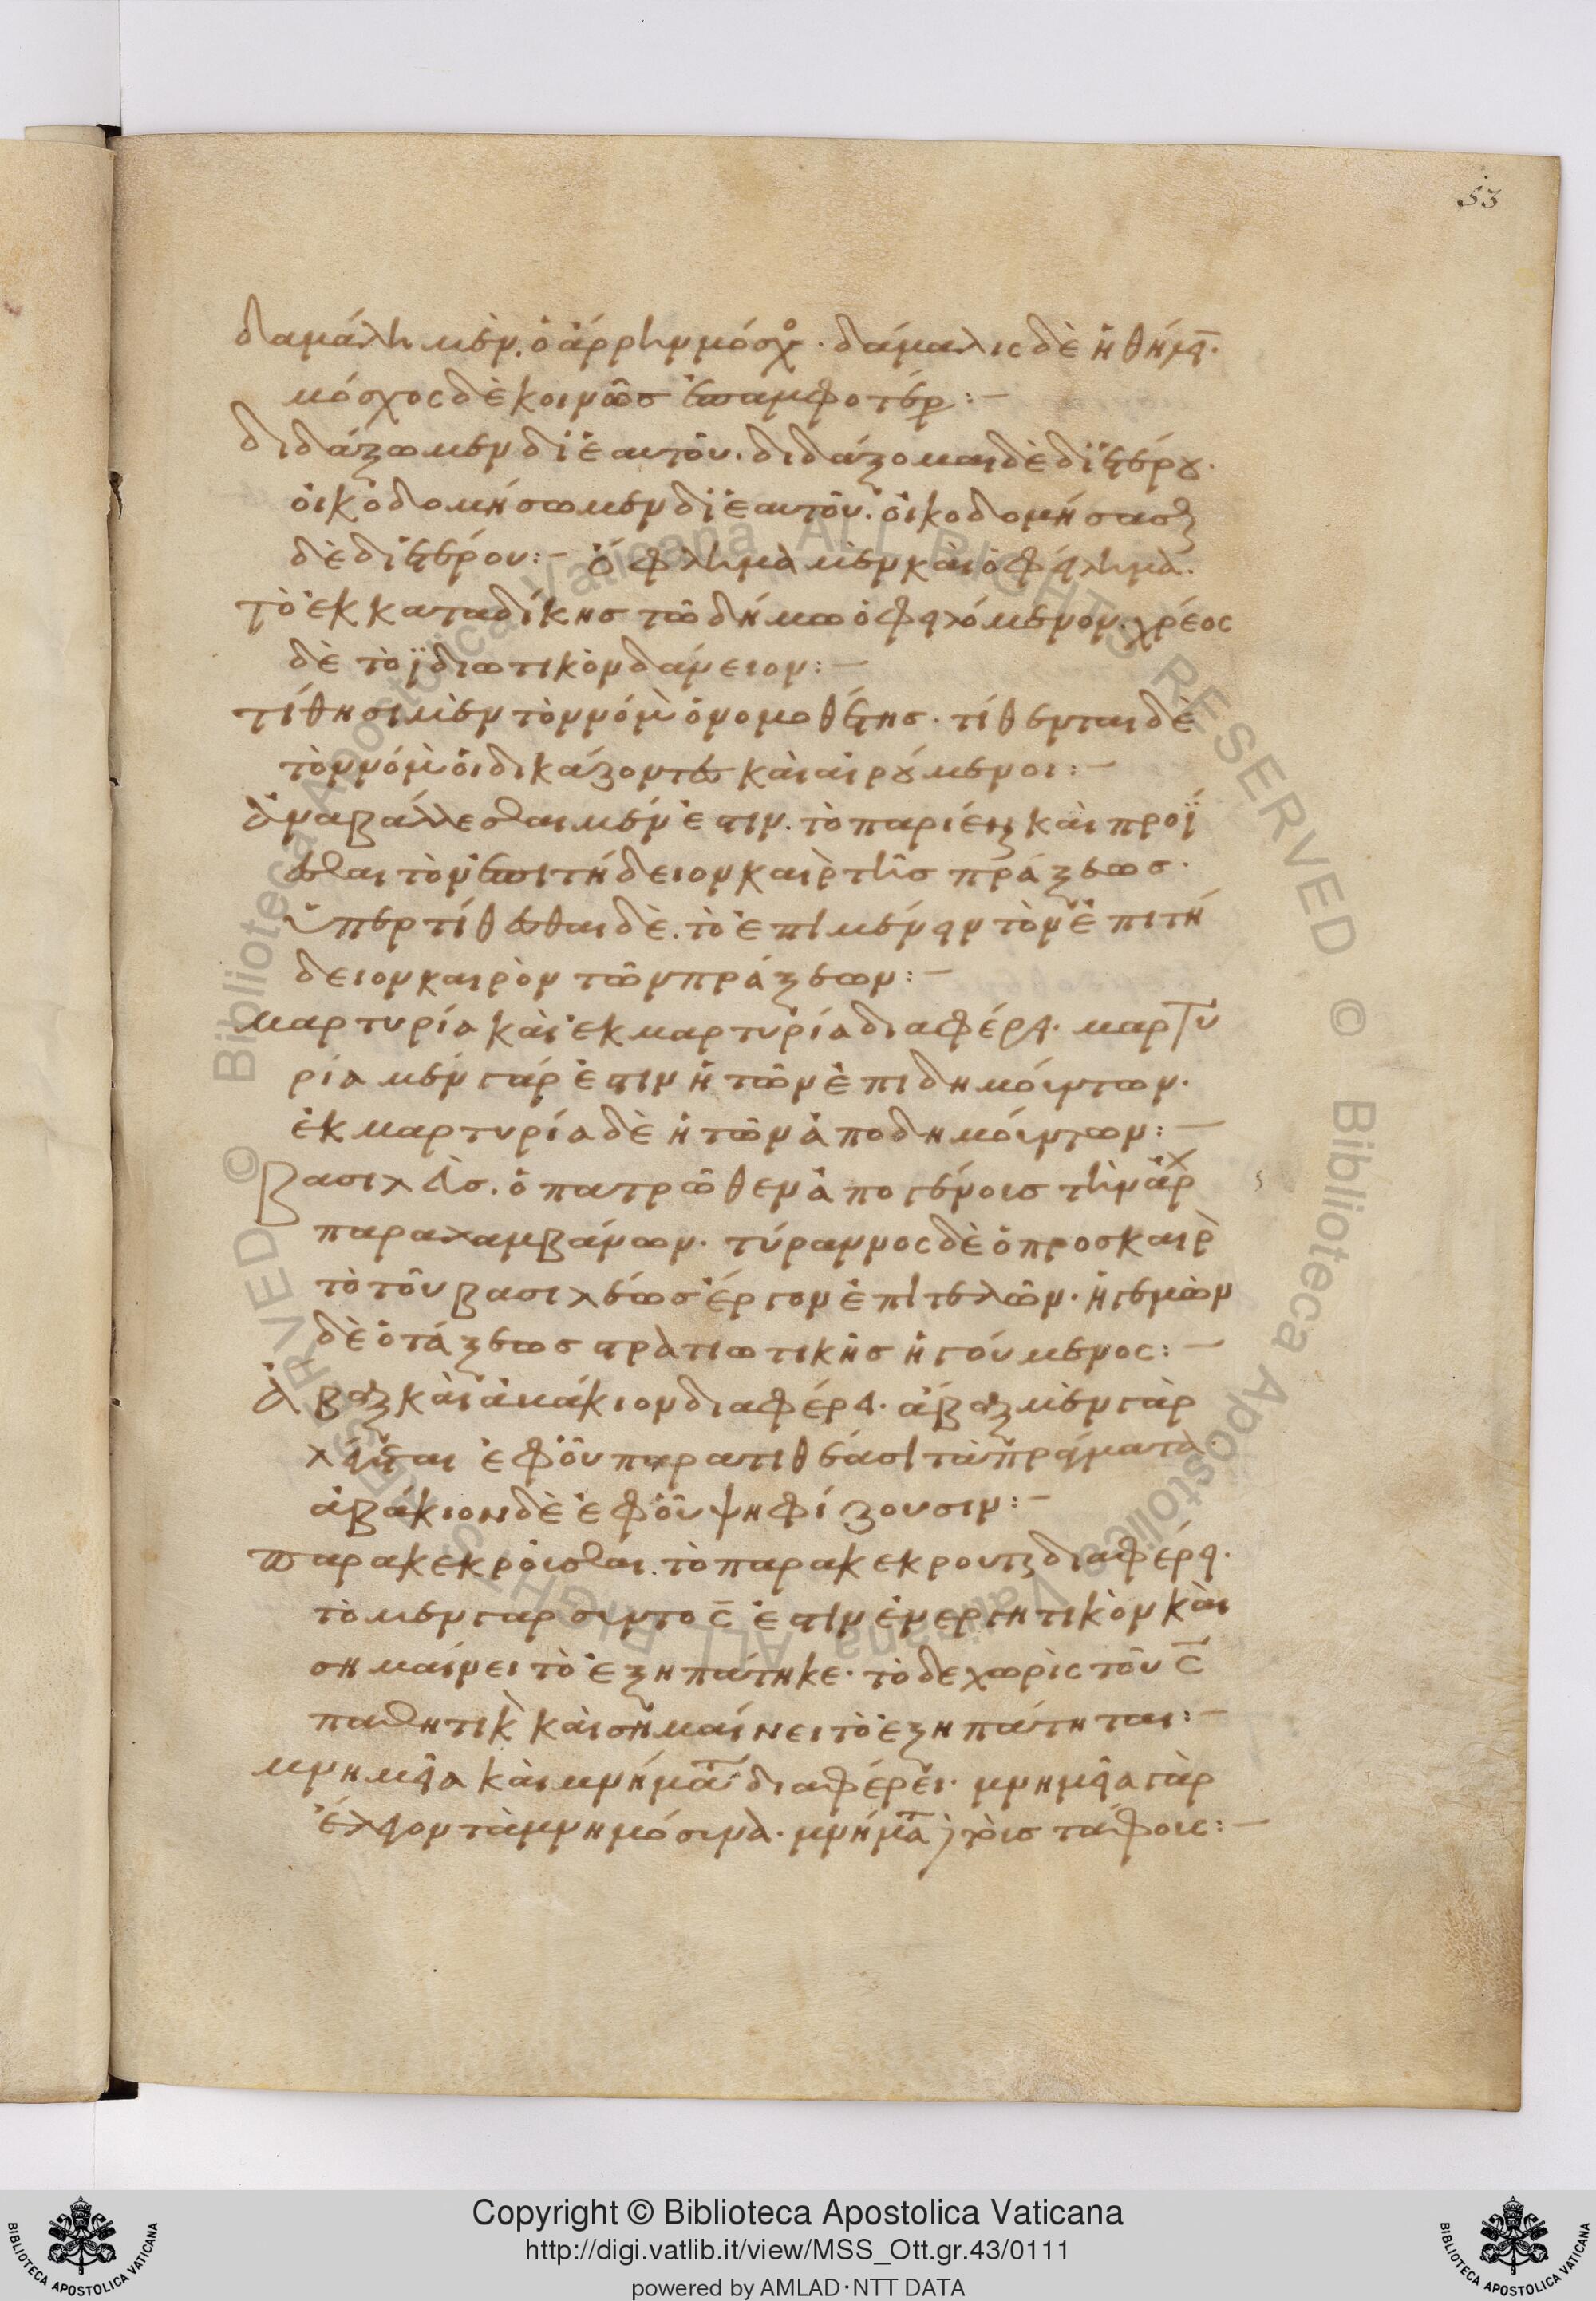 53
δαμάλη μὲν. ὁ ἄρρην μόσχο. δάμαλις δὲ ἡ θήλει.
μόσχος δὲ κοινῶς ἐπαμφοτερ :-
διδάξω μὲν δι' ἑαυτοῦ. διδάξομαι δὲ δι' ἑτέρου.
οἰκοδομήσω μὲν δι' ἑαυτοῦ. οἰκοδομήσασθαι
δὲ δι' ἑτέρου:- Ὄφλημα μὲν καὶ ὀφείλημα.
τὸ ἐκ καταδίκης τῶ δήμω ὀφειλόμενον. χρέος
δὲ τὸ ϊδιωτικὸν δάνειον:-
τίθησι μὲν τὸν νόμον ὁ νομοθέτης. τίθενται δὲ
τὸν νόμον οἱ δικάζοντες καὶ αἱρούμενοι:-
Ἀναβάλλεσθαι μέν ἐστιν. τὸ παριέναι καὶ προϊ
εσθαι τὸν ἐπιτήδειον καιρὸ τῆς πράξεως.
ὑπερτίθεσθαι δὲ. τὸ ἐπιμένειν τὸν ἐπιτή
δειον καιρὸν τῶν πράξεων:-
μαρτυρία καὶ ἐκμαρτυρία διαφέρει. μαρτυ
ρία μὲν γάρ ἐστιν ἡ τῶν ἐπιδημούντων.
ἐκμαρτυρία δὲ ἡ τῶν ἀποδημούντων:-
βασιλεὺς. ὁ πατρῶθεν ἀπὸ γένοις τὴν ἀρχ
παραλαμβάνων. τύραννος δὲ ὁ προσκαιρ
τὸ τοῦ βασιλέως ἔργον ἐπιτελῶν. ἡγεμὼν
δὲ ὁ τάξεως στρατιωτικῆς ἡγούμενος:-
Ἄβαξ καὶ ἀβάκιον διαφέρει. ἄβαξ μὲν γὰρ
λέγεται ἐφ' οὗ παρατιθέασι τὰ πράγματα
ἀβάκιον δὲ ἐφ' οὗ ψηφίζουσιν:-
παρακεκροῦσθαι. τὸ παρακεκρουται διαφέρει.
τὸ μὲν γαρ συν το σ ἐστὶν ἐνεργητικὸν καὶ
σημαίνει τὸ ἐξηπάτηκε. τὸ δε χωρὶς τοῦ σ
παθητικ καὶ σημαίνει τὸ ἐξηπάτηται:-
μνημεῖα καὶ μνήματ διαφέρει. μνημεῖα γὰρ
ἔλεγον τὰ μνημόσυνα. μνήματ τοὺς τάφοις:-
Copyright © Biblioteca Apostolica Vaticana
http://digi.vatlib.it/view/MSS_Ott.gr.43/0111
powered by AMLAD·NTT DATA